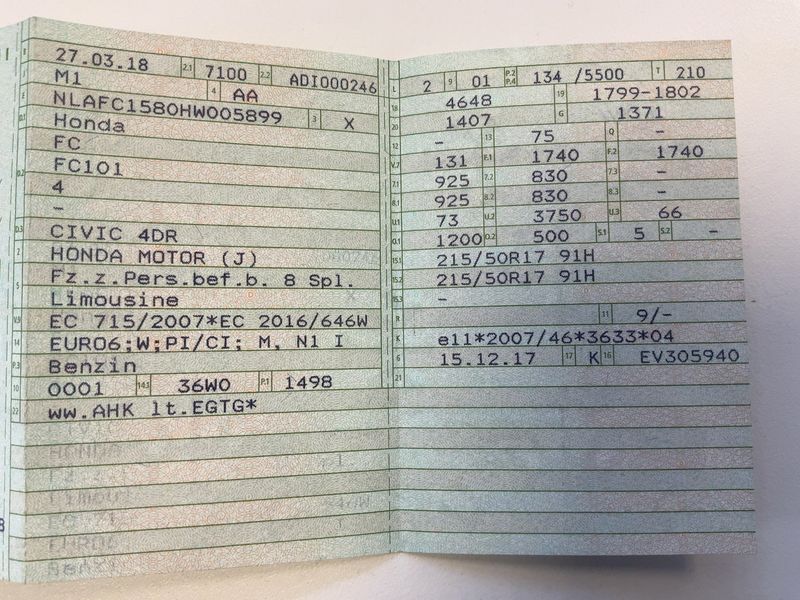 27.03.18 2.1 7100 2.2 ADI000246
M1 4 AA
NLAFC1580HW005899 3 X
Honda
FC
FC101
4
–
D.3 CIVIC 4DR
2 HONDA MOTOR (J)
5 Fz.z.Pers.bef.b. 8 Spl.
Limousine
V.9 EC 715/2007*EC 2016/646W
14 EURO6;W;PI/CI; M, N1 I
P.3 Benzin
10 0001 14.1 36W0 P.1 1498
22 ww.AHK lt.EGTG*
L 2 9 01 P.2 P.4 134 /5500 T 210
18 4648 19 1799-1802
20 1407 G 1371
12 – 13 75 Q –
V.7 131 F.1 1740 F.2 1740
7.1 925 7.2 830 7.3 –
8.1 925 8.2 830 8.3 –
U.1 73 U.2 3750 U.3 66
O.1 1200 O.2 500 S.1 5 S.2 –
15.1 215/50R17 91H
15.2 215/50R17 91H
15.3 –
R 11 9/–
K e11*2007/46*3633*04
6 15.12.17 17 K 16 EV305940
21